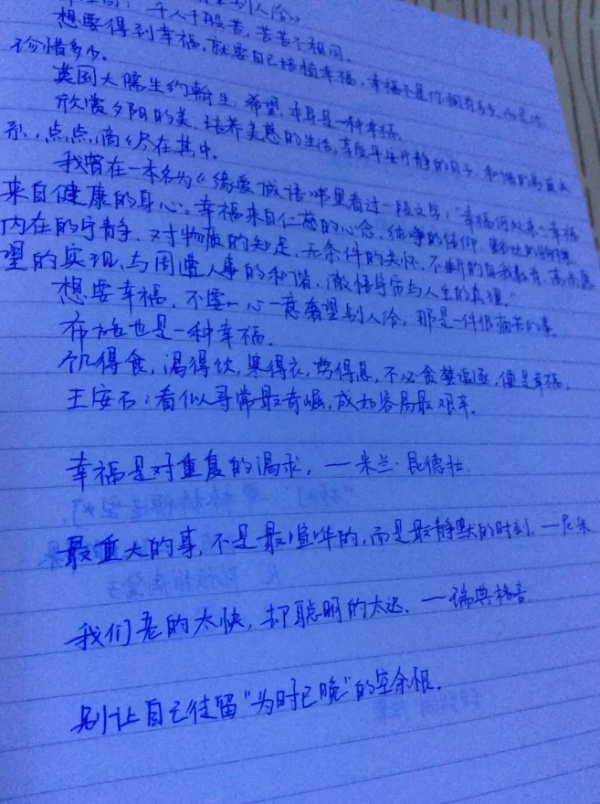 千人千般苦,苦苦不相同。
想要得到幸福,就要自己培植幸福,幸福不是你拥有多少,而是你
珍惜多少。
英国大儒生约翰生,希望本身是一种幸福。
欣赏夕阳的美,培养美感的生活,享受平安宁静的日子,和谐的
点点滴滴尽在其中。
我曾在一本名为《 》书里看过一段文字:"幸福何处来:幸福
来自健康的身心。幸福来自仁慈的心念,纯净的信仰,
内在的宁静,对物质的知足,无条件的关怀,不断的自我教育,高尚愿
望的实现,与周遭人事的和谐,彻悟宇宙与人生的真理。"
想要幸福,不要一心一意奢望别人给,那是一件很痛苦的事。
布施也是一种幸福。
饥得食,渴得饮,寒得衣,劳得息,不必贪婪追逐,便是幸福。
王安石:看似寻常最奇崛,成如容易最艰辛。
幸福是对重复的渴求,—米兰·昆德拉
最重大的事,不是最喧哗的,而是最静默的时刻.—尼采
我们老的太快,却聪明的太迟.—瑞典格言
别让自己徒留"为时已晚"的空余恨.